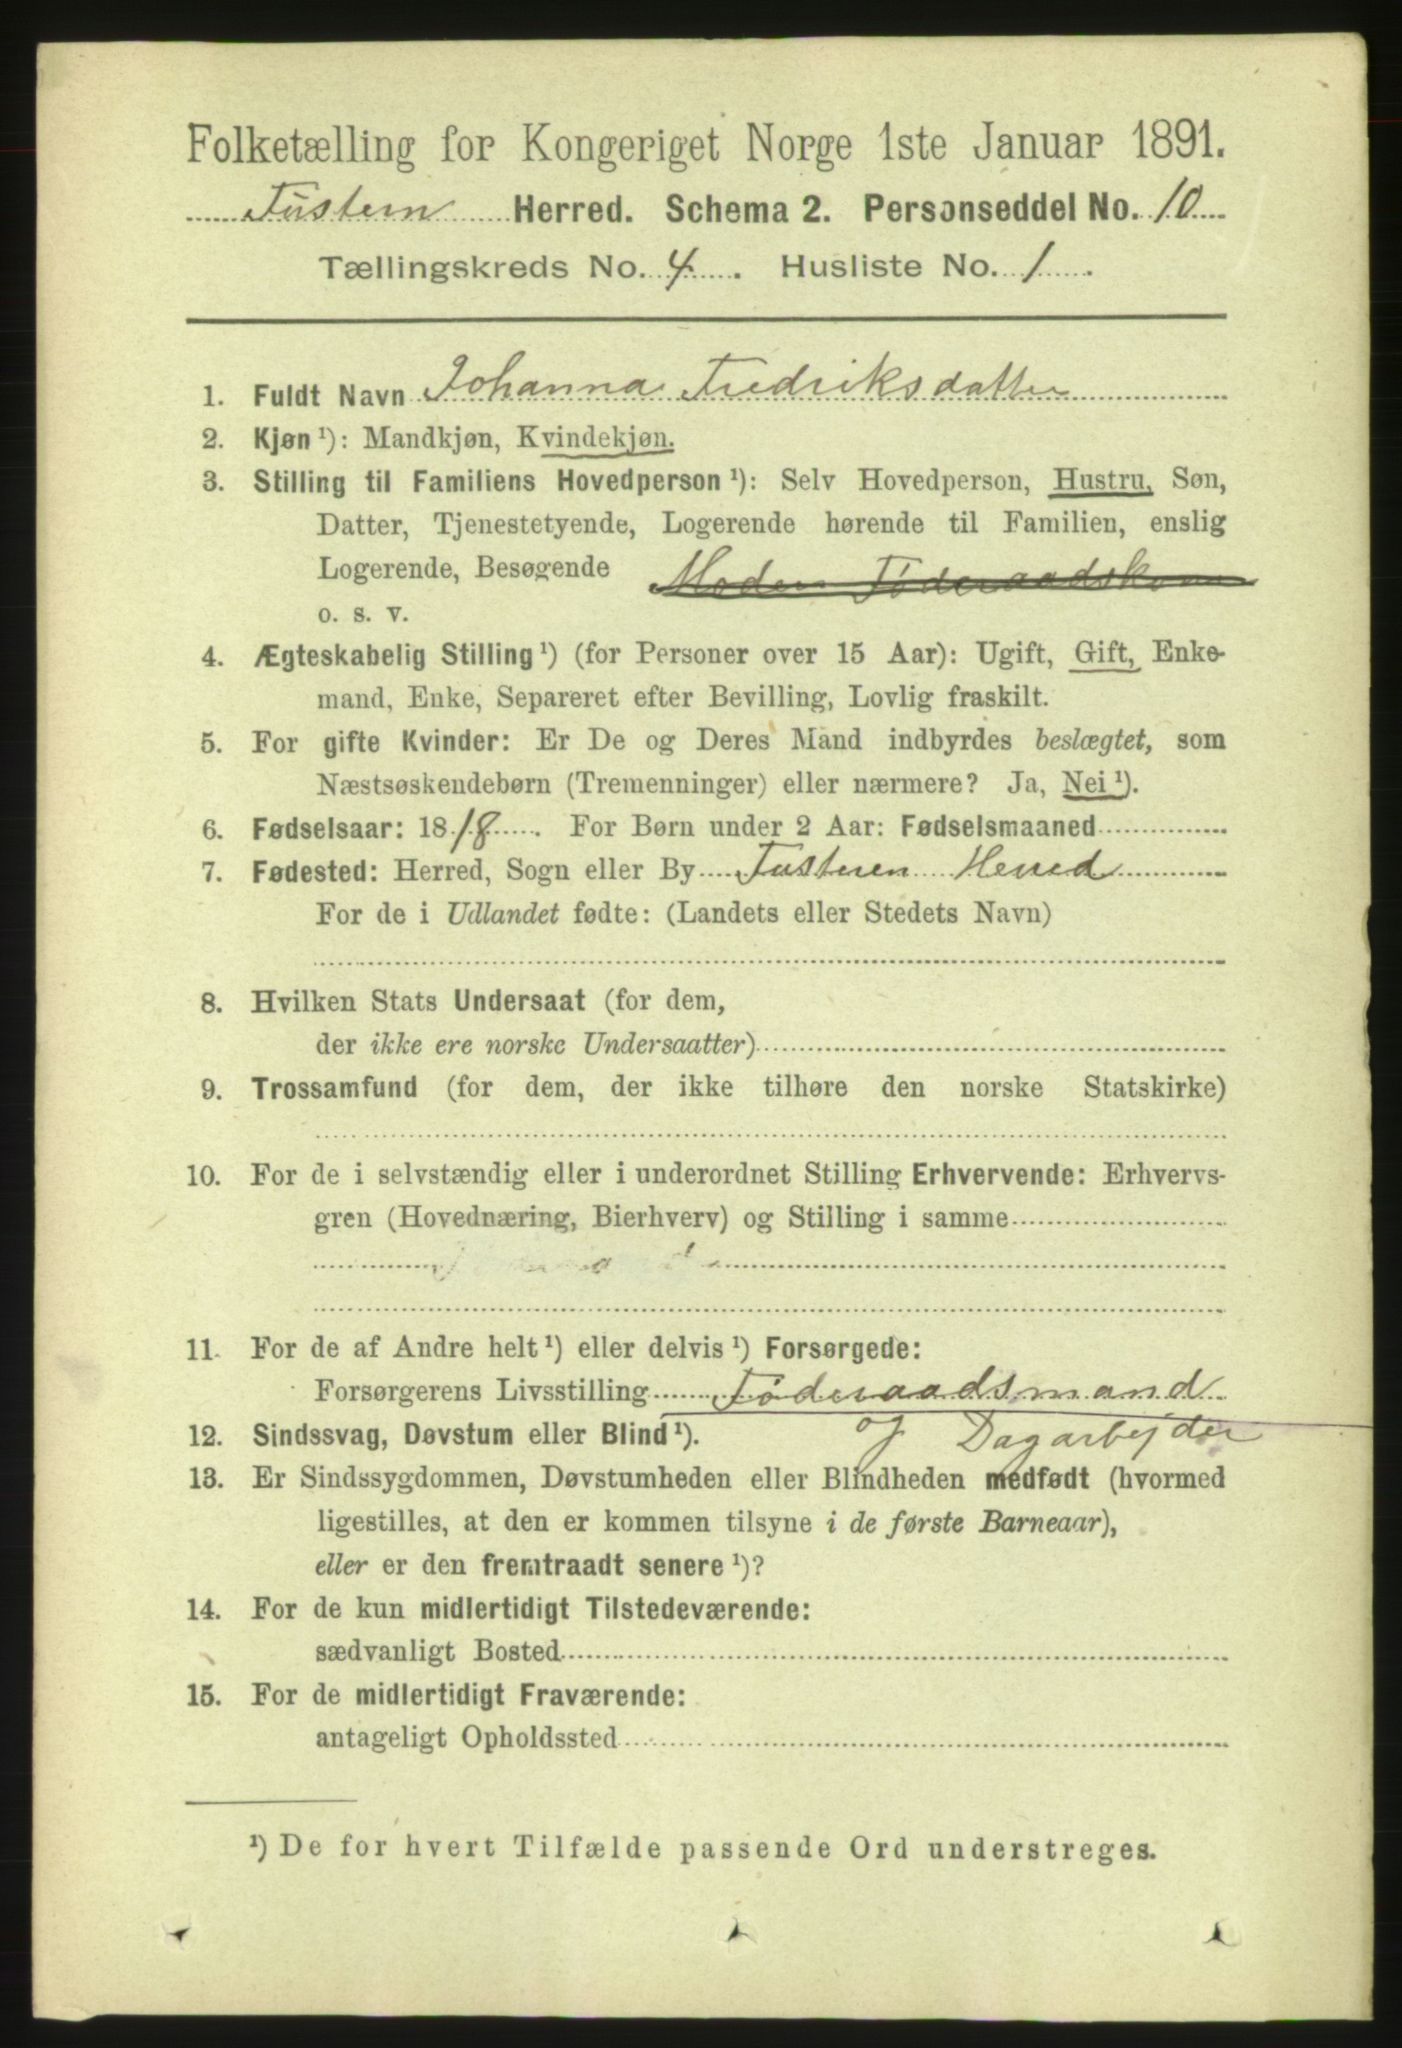 Folketælling for Kongeriget Norge 1ste Januar 1891.
Tustern Herred. Schema 2. Personseddel No. 10
Tællingskreds No. 4. Husliste No. 1.
1. Fuldt Navn Johanna Fredriksdatter
2. Kjøn ¹): Mandkjøn, Kvindekjøn.
3. Stilling til Familiens Hovedperson ¹): Selv Hovedperson, Hustru, Søn,
Datter, Tjenestetyende, Logerende hørende til Familien, enslig
Logerende, Besøgende Moder Føderaadskone
o. s. v.
4. Ægteskabelig Stilling ¹) (for Personer over 15 Aar): Ugift, Gift, Enke-
mand, Enke, Separeret efter Bevilling, Lovlig fraskilt.
5. For gifte Kvinder: Er De og Deres Mand indbyrdes beslægtet, som
Næstsøskendebørn (Tremenninger) eller nærmere? Ja, Nei ¹).
6. Fødselsaar: 1818. For Børn under 2 Aar: Fødselsmaaned
7. Fødested: Herred, Sogn eller By Tusteren Herred
For de i Udlandet fødte: (Landets eller Stedets Navn)
8. Hvilken Stats Undersaat (for dem,
der ikke ere norske Undersaatter)
9. Trossamfund (for dem, der ikke tilhøre den norske Statskirke)
10. For de i selvstændig eller i underordnet Stilling Erhvervende: Erhvervs-
gren (Hovednæring, Bierhverv) og Stilling i samme
11. For de af Andre helt ¹) eller delvis ¹) Forsørgede:
Forsørgerens Livsstilling Føderaadsmand
12. Sindssvag, Døvstum eller Blind ¹). og Dagarbejder
13. Er Sindssygdommen, Døvstumheden eller Blindheden medfødt (hvormed
ligestilles, at den er kommen tilsyne i de første Barneaar),
eller er den fremtraadt senere ¹)?
14. For de kun midlertidigt Tilstedeværende:
sædvanligt Bosted
15. For de midlertidigt Fraværende:
antageligt Opholdssted
¹) De for hvert Tilfælde passende Ord understreges.